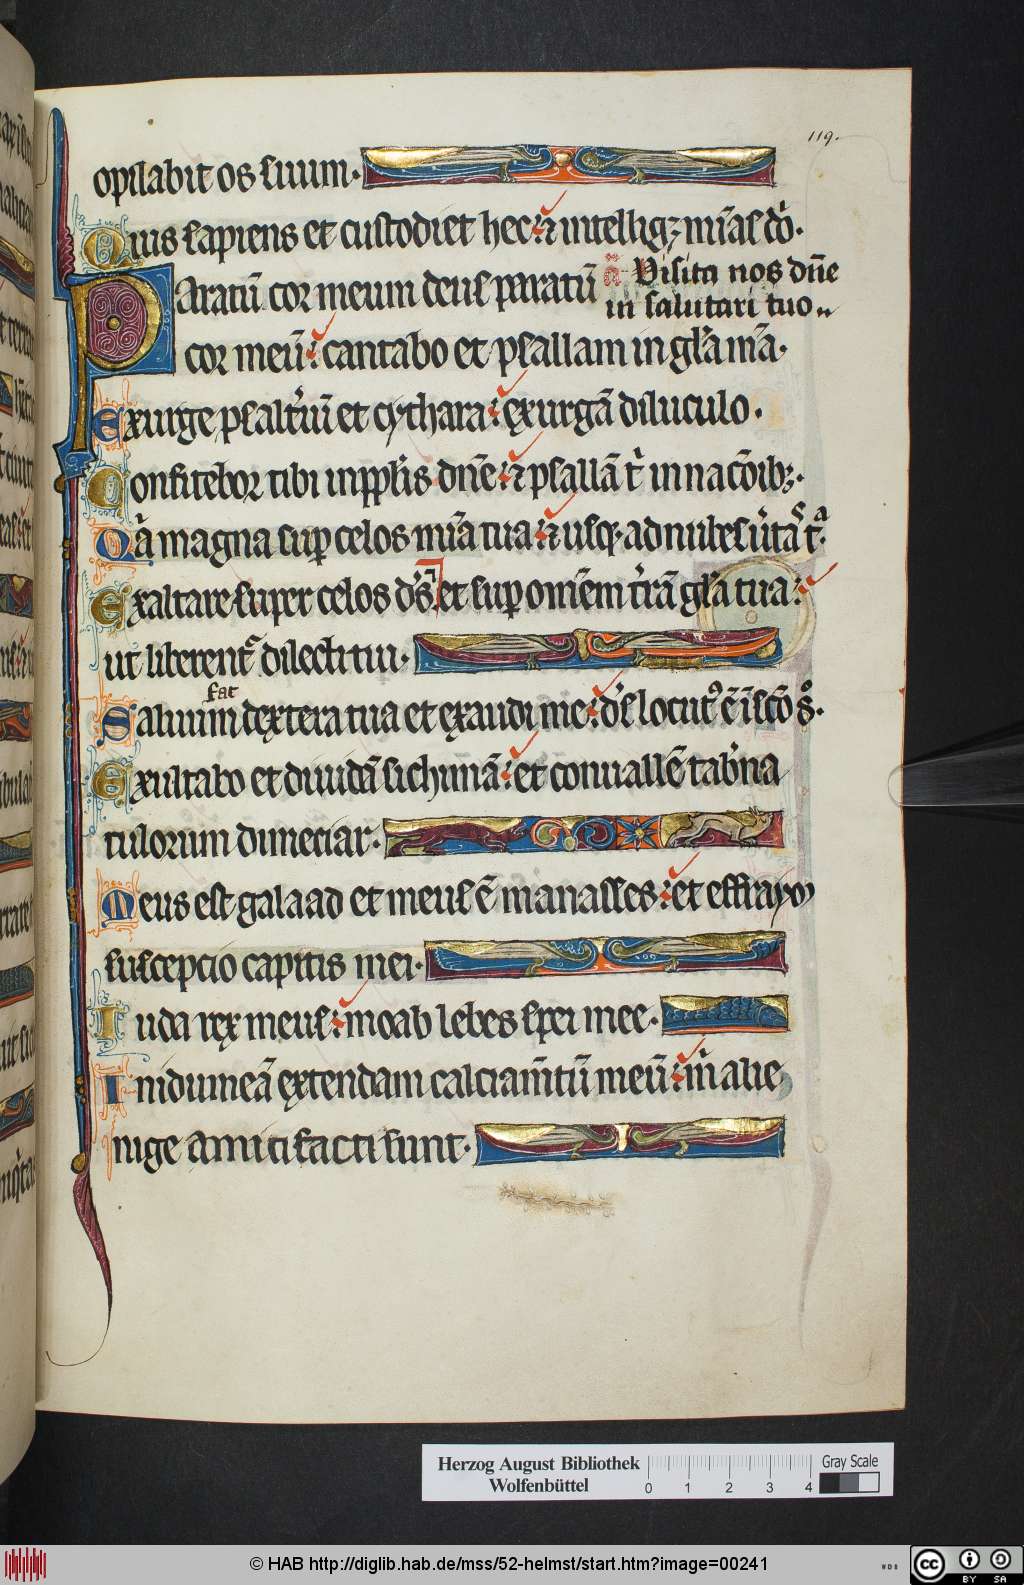 119.
opilabit os suum.
Quis sapiens et custodiet hec: ⁊ intelligꝫ mĩas dñi.
Paratũ cor meum deus paratũ
añ Visita nos dñe
in salutari tuo..
cor meũ: cantabo et psallam in gl̃a mẽa.
Exurge psaltĩũ et cythara: exurgã diluculo.
Confitebor tibi in pp̃lis dñe: ⁊ psallã t̃ in nacõibꝫ.
Qĩa magna sup celos mĩa tua: ⁊ usqꝫ ad nubes ũitas tᵃ.
Exaltare super celos ds̃ et sup omẽm t̃rã gl̃a tua:
ut liberent̃ dilecti tui.
fac
Saluum dextera tua et exaudi me: ds̃ locutꝰ ẽ ĩ sc̃o s͛.
Exultabo et diuidã sichimã: et conuallẽ tab̃na
tulorum dimeciar.
Meus est galaad et meus ẽ manasses: et effraym
suscepcio capitis mei.
Iuda rex meus: moab lebes spei mee.
In idumeã extendam calciam̃tũ meũ: m̃ alie
nige amici facti sunt.
Herzog August Bibliothek
Wolfenbüttel
0 1 2 3 4
Gray Scale
© HAB http://diglib.hab.de/mss/52-helmst/start.htm?image=00241
WDB
cc
BY SA